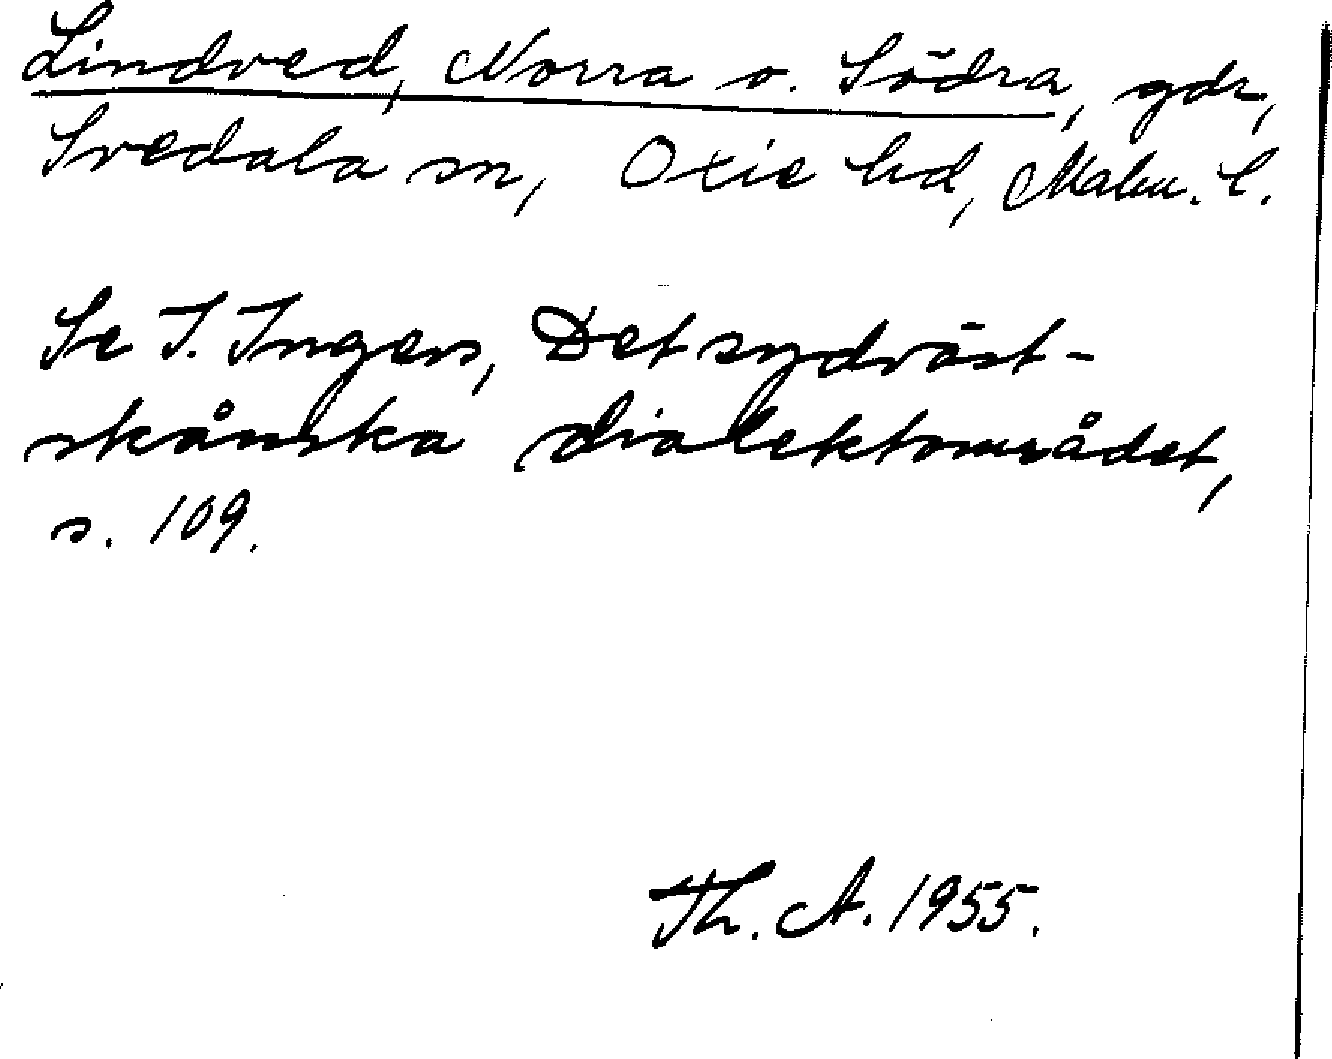 Lindved, Norra o. Södra, gdr,
Svedala sn, Oxie hd, Malm. l.
Se I. Ingers, Det sydväst-
skånska dialektområdet,
s. 109.
Th. A. 1955.